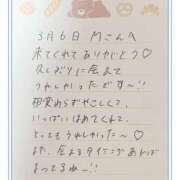 3月6日 Mさんへ
来てくれてありがとう♡
久しぶりに会えて
うれしかったです〜!!
相変わらずやさしくて、
いっぱいほめてくれて、
とってもうれしかった〜♡
また、会えるタイミングあれば
よってるねー!!